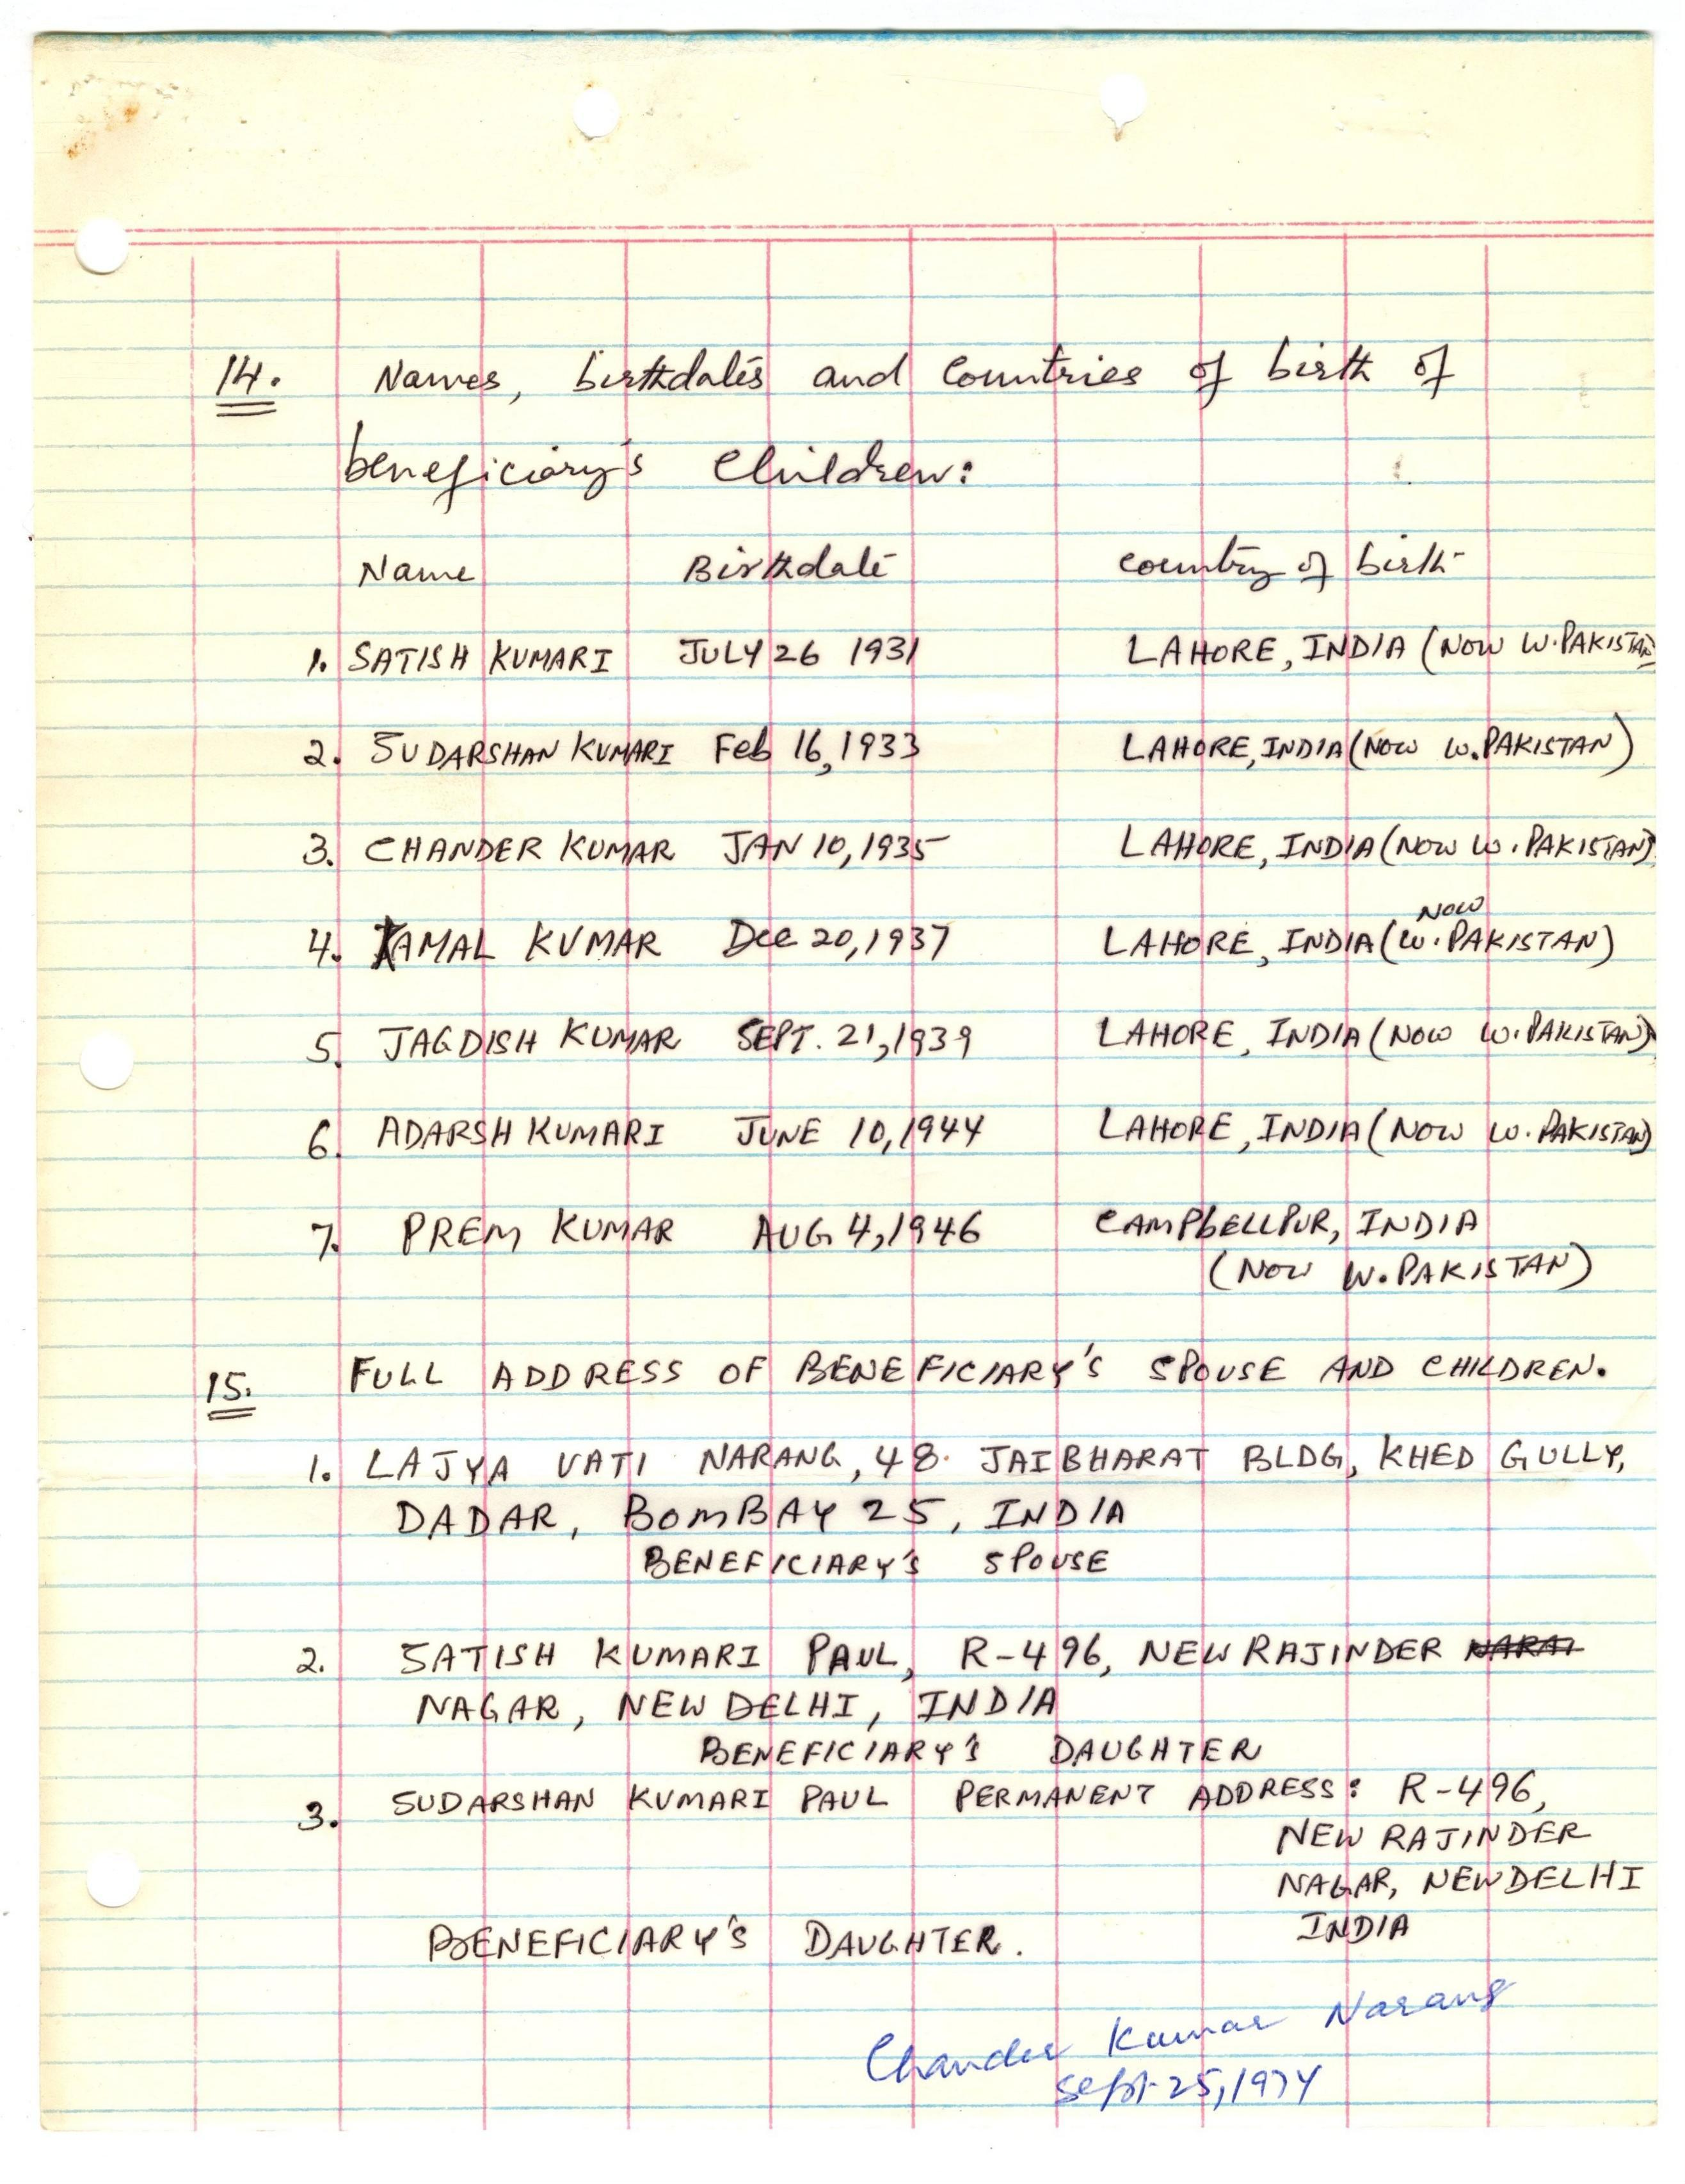 14. Names, birthdates and Countries of birth of
beneficiary's Children:
Name Birthdate country of birth
1. SATISH KUMARI JULY 26 1931 LAHORE, INDIA (NOW W. PAKISTAN
2. SUDARSHAN KUMARI Feb 16, 1933 LAHORE, INDIA (NOW W. PAKISTAN)
3. CHANDER KUMAR JAN 10, 1935 LAHORE, INDIA (NOW W. PAKISTAN)
NOW
4. KAMAL KUMAR Dec 20, 1937 LAHORE, INDIA (W. PAKISTAN)
5. JAGDISH KUMAR SEPT. 21, 1939 LAHORE, INDIA (NOW W. PAKISTAN)
6. ADARSH KUMARI JUNE 10, 1944 LAHORE, INDIA (NOW W. PAKISTAN)
7. PREM KUMAR AUG 4, 1946 CAMPbELLPUR, INDIA
(NOW W. PAKISTAN)
15. FULL ADDRESS OF BENEFICIARY'S SPOUSE AND CHILDREN.
1. LAJYA VATI NARANG, 48. JAIBHARAT BLDG, KHED GULLY,
DADAR, BOMBAY 25, INDIA
BENEFICIARY'S SPOUSE
2. SATISH KUMARI PAUL, R-496, NEW RAJINDER
NAGAR, NEW DELHI, INDIA
BENEFICIARY'S DAUGHTER
3. SUDARSHAN KUMARI PAUL PERMANENT ADDRESS: R-496,
NEW RAJINDER
NAGAR, NEW DELHI
INDIA
BENEFICIARY'S DAUGHTER.
Chander Kumar Narang
Sept. 25, 1974